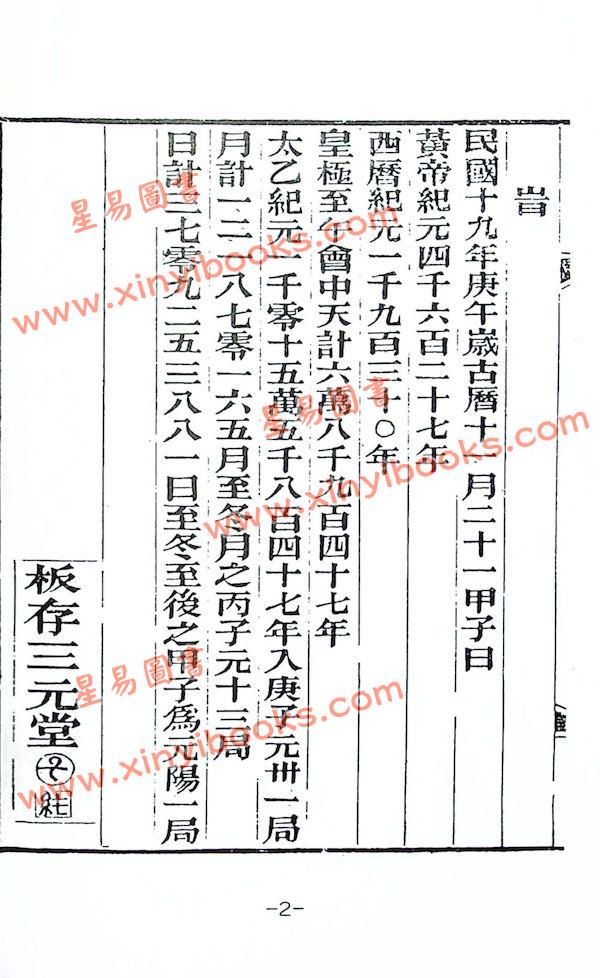 旹
民國十九年庚午歲古曆十一月二十一甲子日
黃帝紀元四千六百二十七年
西曆紀元一千九百三十〇年
皇極至午會中天計六萬八千九百四十七年
太乙紀元一千零十五萬五千八百四十七年入庚子元卅一局
月計一二一八七零一六五月至冬月之丙子元十三局
日計三七零九二五三八八一日至冬至後之甲子為元陽一局
板存三元堂
星易圖書
www.xinyibooks.com
星易圖書
www.xinyibooks.com
星易圖書
www.xinyibooks.com
-2-